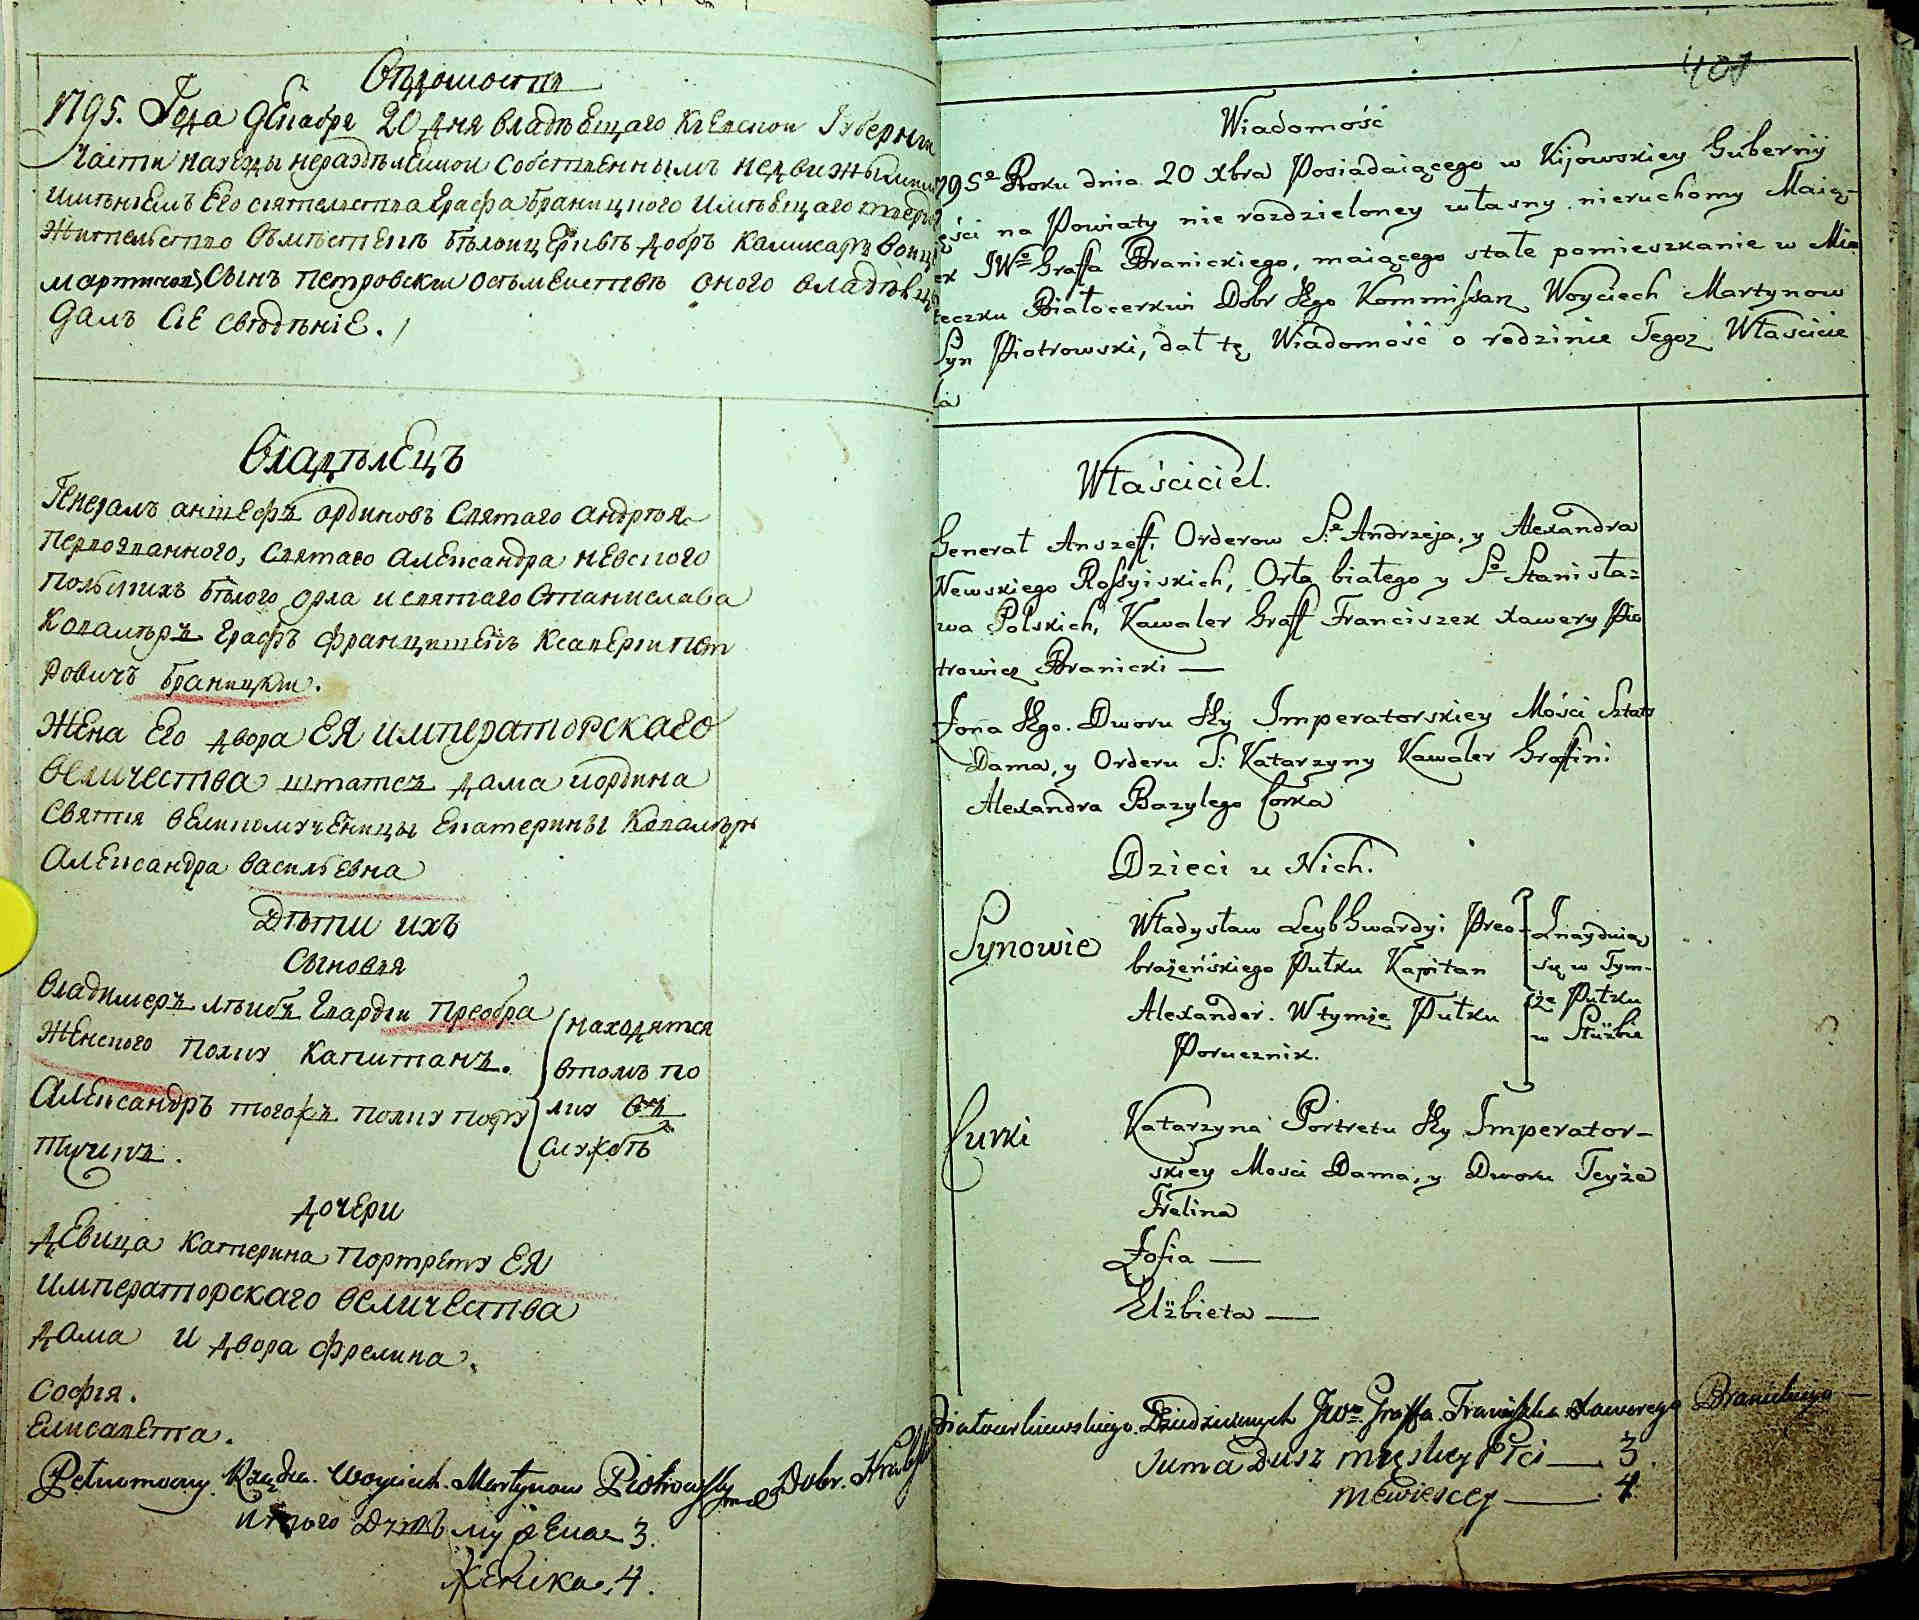 Вѣдомость
1795. Года Декабря 20 дня владѣющаго Киевской Губернии
части на уезды нераздѣлѣнной собственнымъ недвижымымъ
имѣниемъ Его сиятельства Графа Браницкого имѣющаго
жительство въ мѣстечкѣ бѣлоицерквѣ добръ комисаръ
мартиновъ сынъ петровски
далъ сіе свѣдѣніе.
Владѣлецъ
Генералъ аншефъ ордѣновъ святаго андрѣя
Первозванного, святаго александра невского
Польскихъ бѣлого орла и святаго Станислава
Ковалѣръ Графъ францишекъ ксавери пет
ровичъ браницки.
Жена Его двора ЕЯ императорскаго
величества штатсъ дама и ордина
святия великомученицы Екатерины Ковалѣръ
Александра васильевна
Дѣти ихъ
Сыновья
Владимеръ лѣибъ Гвардии Преобра
женского полку Капитанъ.
Александръ тогожъ полку пору
тчикъ.
находятся
втомъ по
лку въ
службѣ
дочери
дѣвица катерина портрету ЕЯ
императорскаго величества
дама и двора фрелина.
Софія.
Елисавета.
Woyciech Martynow Piotrowski Dobr
Итого душъ мужеска 3.
Женска 4.
401
Wiadomość
795º Roku dnia 20 Xbra Posiadaiącego w Kijowskiey Guberny
ści na Powiaty nie rozdzieloney własny nieruchomy Maią-
ek JWº Graffa Branickiego, maiącego stałe pomieszkanie w Mia
teczku Białocerkwi Dobr Jego Kommissarz Woyciech Martynow
Syn Piotrowski, dał tę Wiadomość o rodzinie Tegoż Właścicie
la
Właściciel.
Generał Anszeff, Orderow Sº Andrzeja, y Alexandra
Newskiego Rossyiskich, Orła białego y Sº Stanisła=
wa Polskich, Kawaler Graff Franciszek Xawery Pio
trowicz Branicki —
Żona Jego. Dworu Jey Imperatorskiey Mości Sztats
Dama, y Orderu S: Katarzyny Kawaler Graffini
Alexandra Bazylego Corka
Dzieci u Nich.
Synowie
Władysław LeybGwardyi Preo-
brażeńskiego Pułku Kapitan
Alexander. W tymże Pułku
Porucznik.
Znayduią
się w Tym-
że Pułku
w Służbie
Curki
Katarzyna Portretu Jey Imperator-
skiey Mosci Dama, y Dworu Teyże
Frelina
Zofia —
Elżbieta —
Białocerkiewskiego Dziedzicznych JWº Graffa Franciszka Xawerego Branickiego —
Suma Dusz męskey Płci — 3.
niewiescey — 4